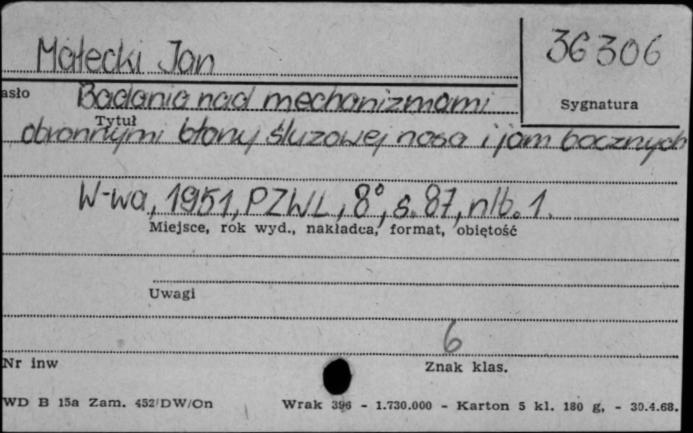 Małecki Jan
36306
asło
Badania nad mechanizmami
Sygnatura
Tytuł
obronnymi błony śluzowej nosa i jam bocznych
W-wa, 1951, PZWL, 8°, s. 87, nlb. 1.
Miejsce, rok wyd., nakładca, format, objętość
Uwagi
6
Nr inw
Znak klas.
WD B 15a Zam. 452/DW/On
Wrak 396 - 1.730.000 - Karton 5 kl. 180 g. - 30.4.68.